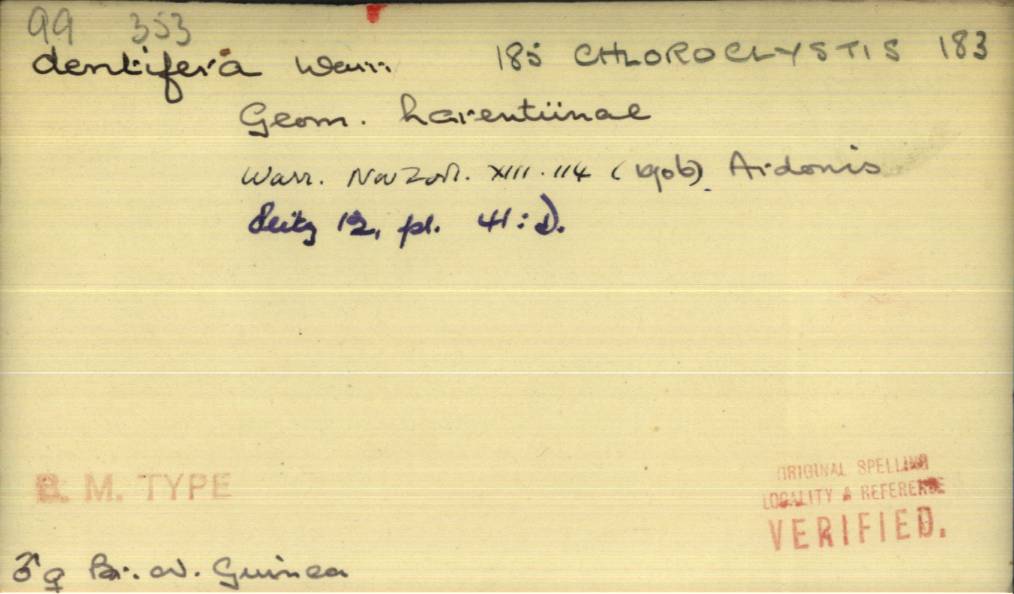 99 353
dentifera Warr. 185 CHLOROCLYSTIS 183
Geom. Larentiinae
Warr. Nov Zool. XIII. 114 (1906). Axdonis
Seitz 12, pl. 41:D.
B. M. TYPE
ORIGINAL SPELLING
LOCALITY & REFERENCE
VERIFIED.
♂ ♀ Br. N. Guinea